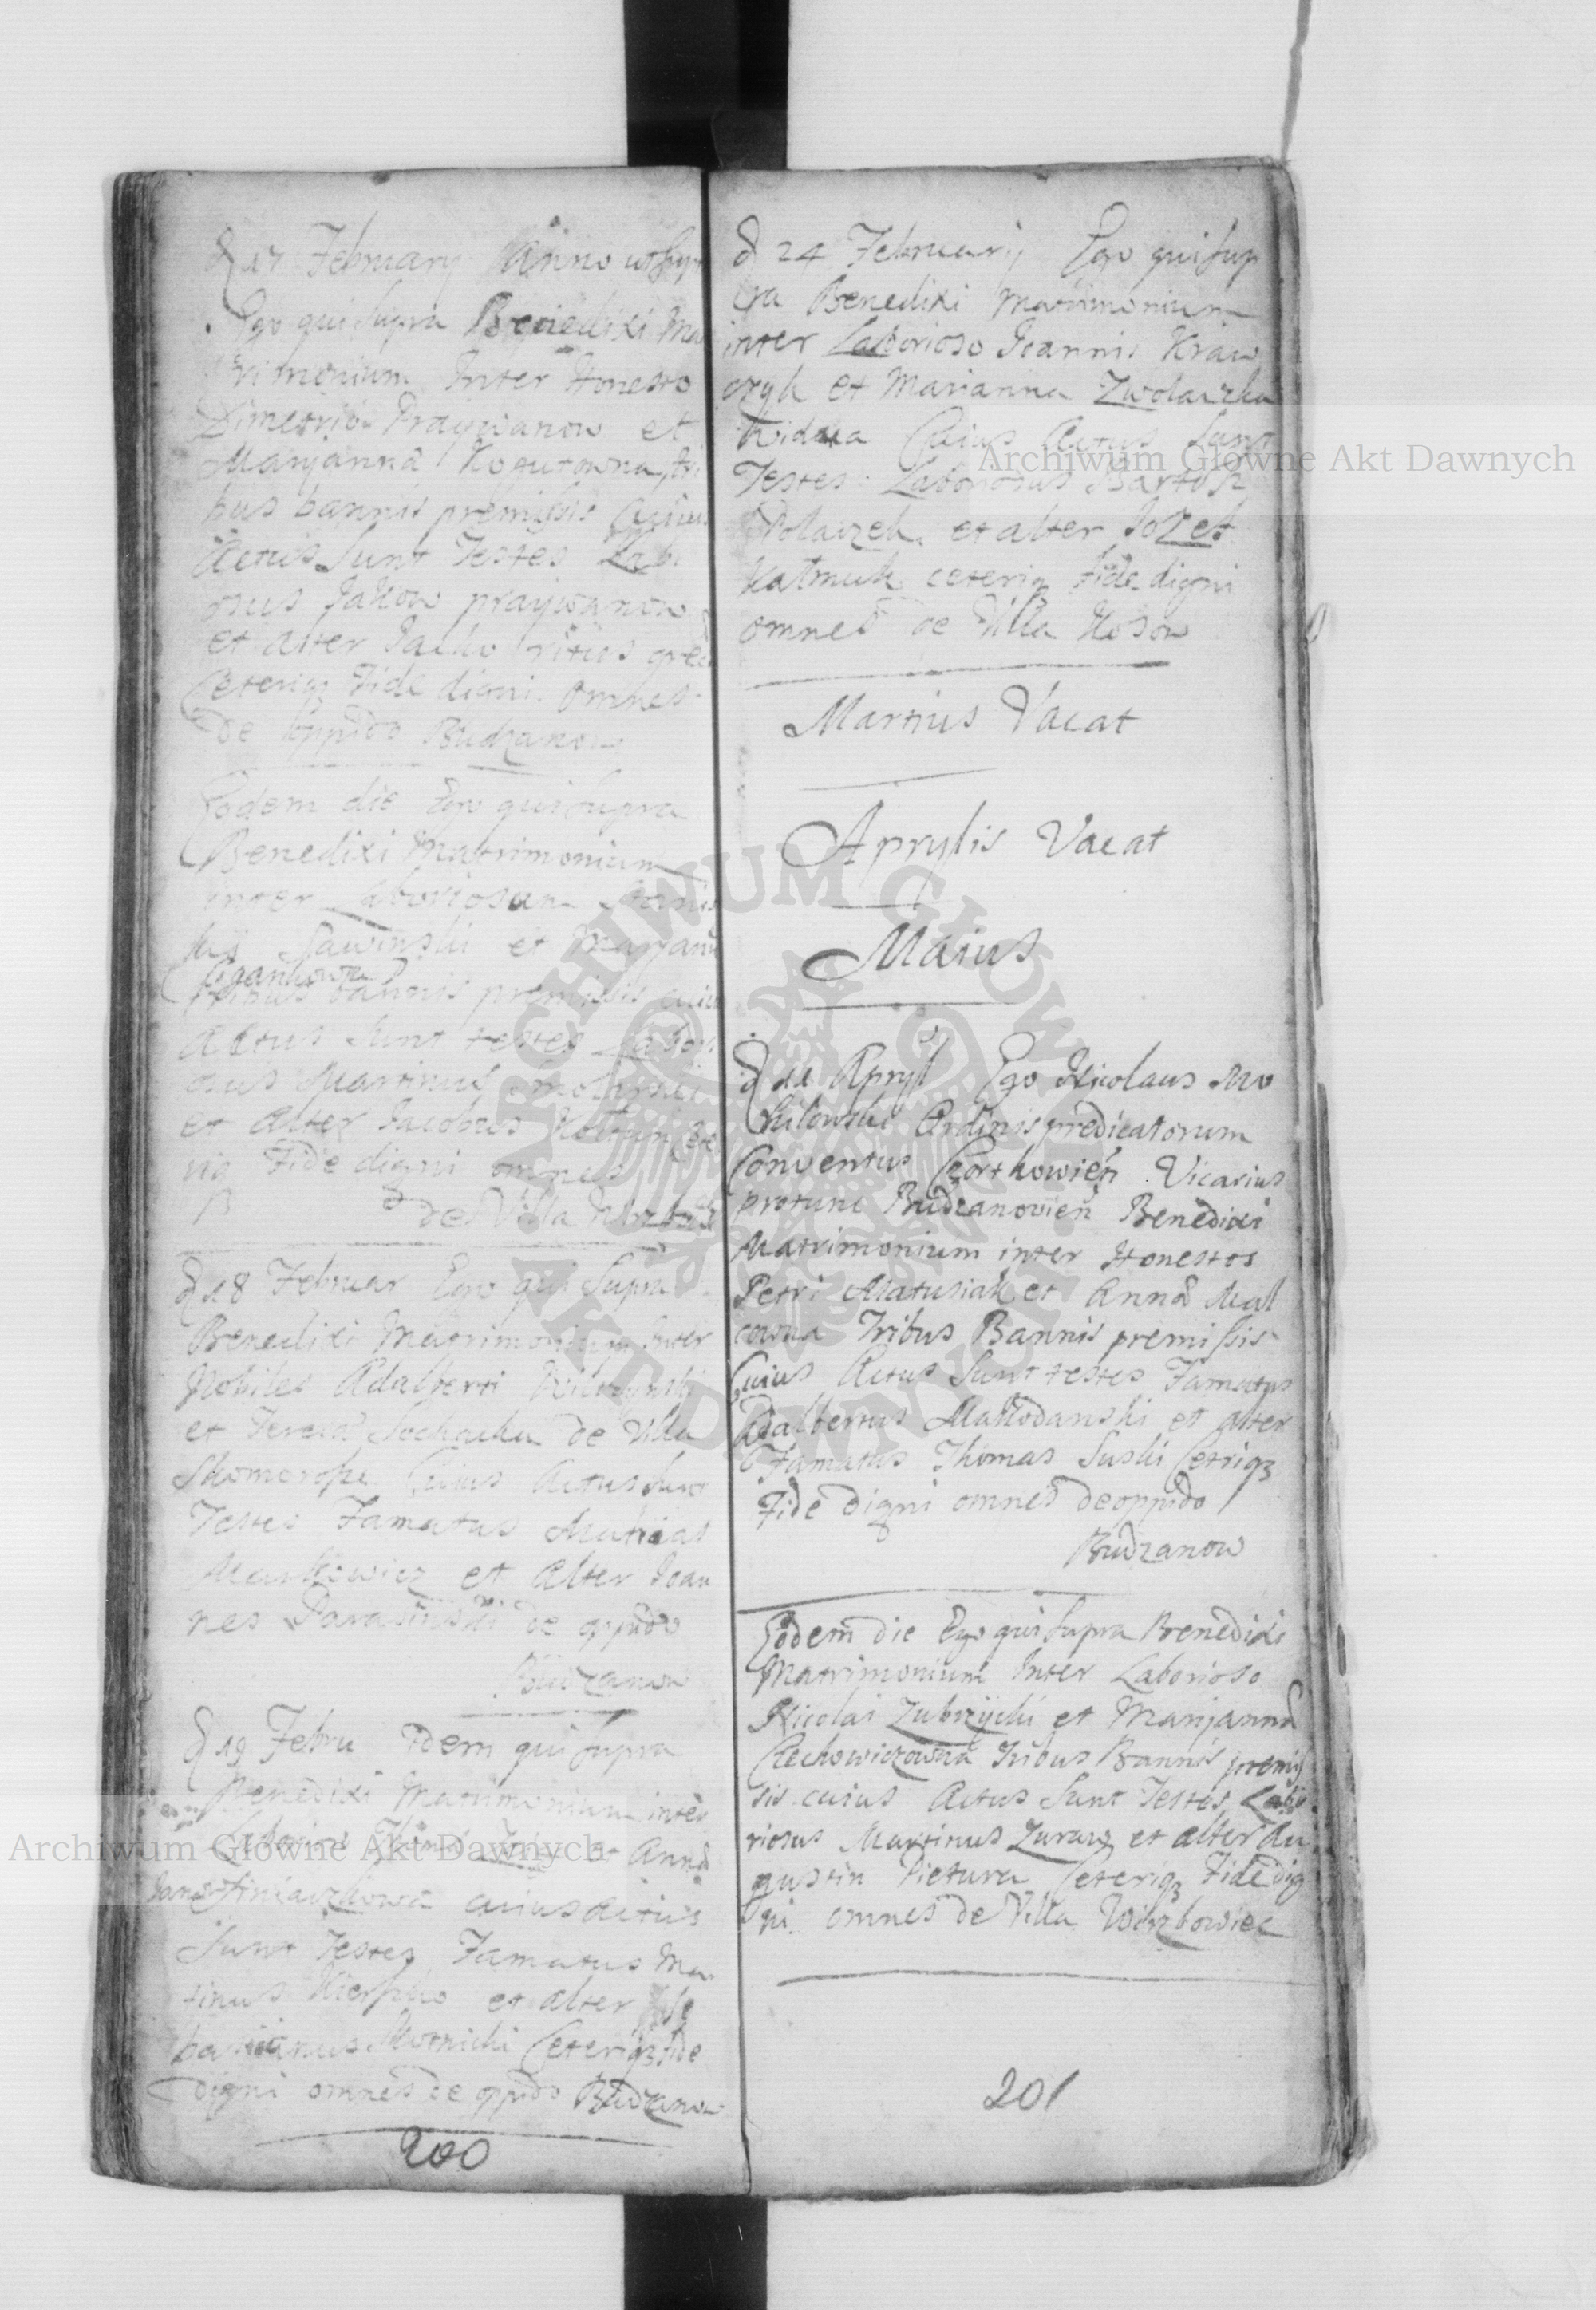 d 17 February Anno ut supr
Ego qui supra Benedixi Ma
trimonium Inter Honesto
Dimetrii Praywanow et
Maryanna Kosutowna, tri
bus bannis premissis Cuius
Actus Sunt Testes Labo
osus Jakow praywanow
et alter Jacko ritus
Ceteriqz Fide digni omnes
de oppido Budzanow
Eodem die Ego qui supra
Benedixi Matrimonium
inter Laboriosan Stanis
lai Sawinski et Maryann
Cygankowna
tribus bannis premissis cuius
actus Sunt testes Labor
osus Martinus
et alter Jacobus Koltun Cete
riq Fide digni omnes
de Villa
d 18 Februar Ego qui Supra
Benedixi Matrimonium Inter
Nobiles Adalberti Wilczynski
et Teresa Sochacka de Villa
Skomorosze Cuius Actus Sunt
Testes Famatus Mathias
Markowicz et alter Joan
nes Parasinski de oppido
Budzanow
d 19 Febru Idem qui supra
Benedixi Matrimonium inter
Laborioso et Anna
cuius actus
Sunt testes Famatus Mar
tinus et alter Se
bastianus Motnicki Ceteriqz fide
digni omnes de oppido Budzanow
200
d 24 Februarij Ego qui sup
ra Benedixi Matrimonium
inter Laborioso Joannis Kraw
czyk et Marianna Zwolaczka
Widua Cuius Actus Sunt
Testes Laboriosus Bartosz
Wolaczek et alter Jozef
Katmuk ceteriqz fide digni
omnes de Villa Kosow
Martius Vacat
Aprylis Vacat
Maius
d 11 Apryl Ego Nicolaus Mo
hilowski Ordinis predicatorum
Conventus Czortkowień Vicarius
protunc Budzanovień Benedixi
Matrimonium inter Honestos
Petri Matusiak et Anna Mal
cowna Tribus Bannis premissis
Cuius Actus Sunt testes Famatus
Adalbertus Makodanski et alter
Famatus Thomas Suski Cetriqz
Fide digni omnes de oppido
Budzanow
Eodem die Ego qui Supra Benedixi
Matrimonium Inter Laborioso
Nicolai Zubrzycki et Maryanna
Czechowiczowna Tribus Bannis premis
sis cuius Actus Sunt Testes Labo
riosus Martinus Zuraw et alter Au
gustin Pietura Ceteriqz Fide dig
ni omnes de Villa Wirzbowiec
201
Archiwum Główne Akt Dawnych
Archiwum Główne Akt Dawnych
ARCHIWUM GŁÓWNE AKT DAWNYCH